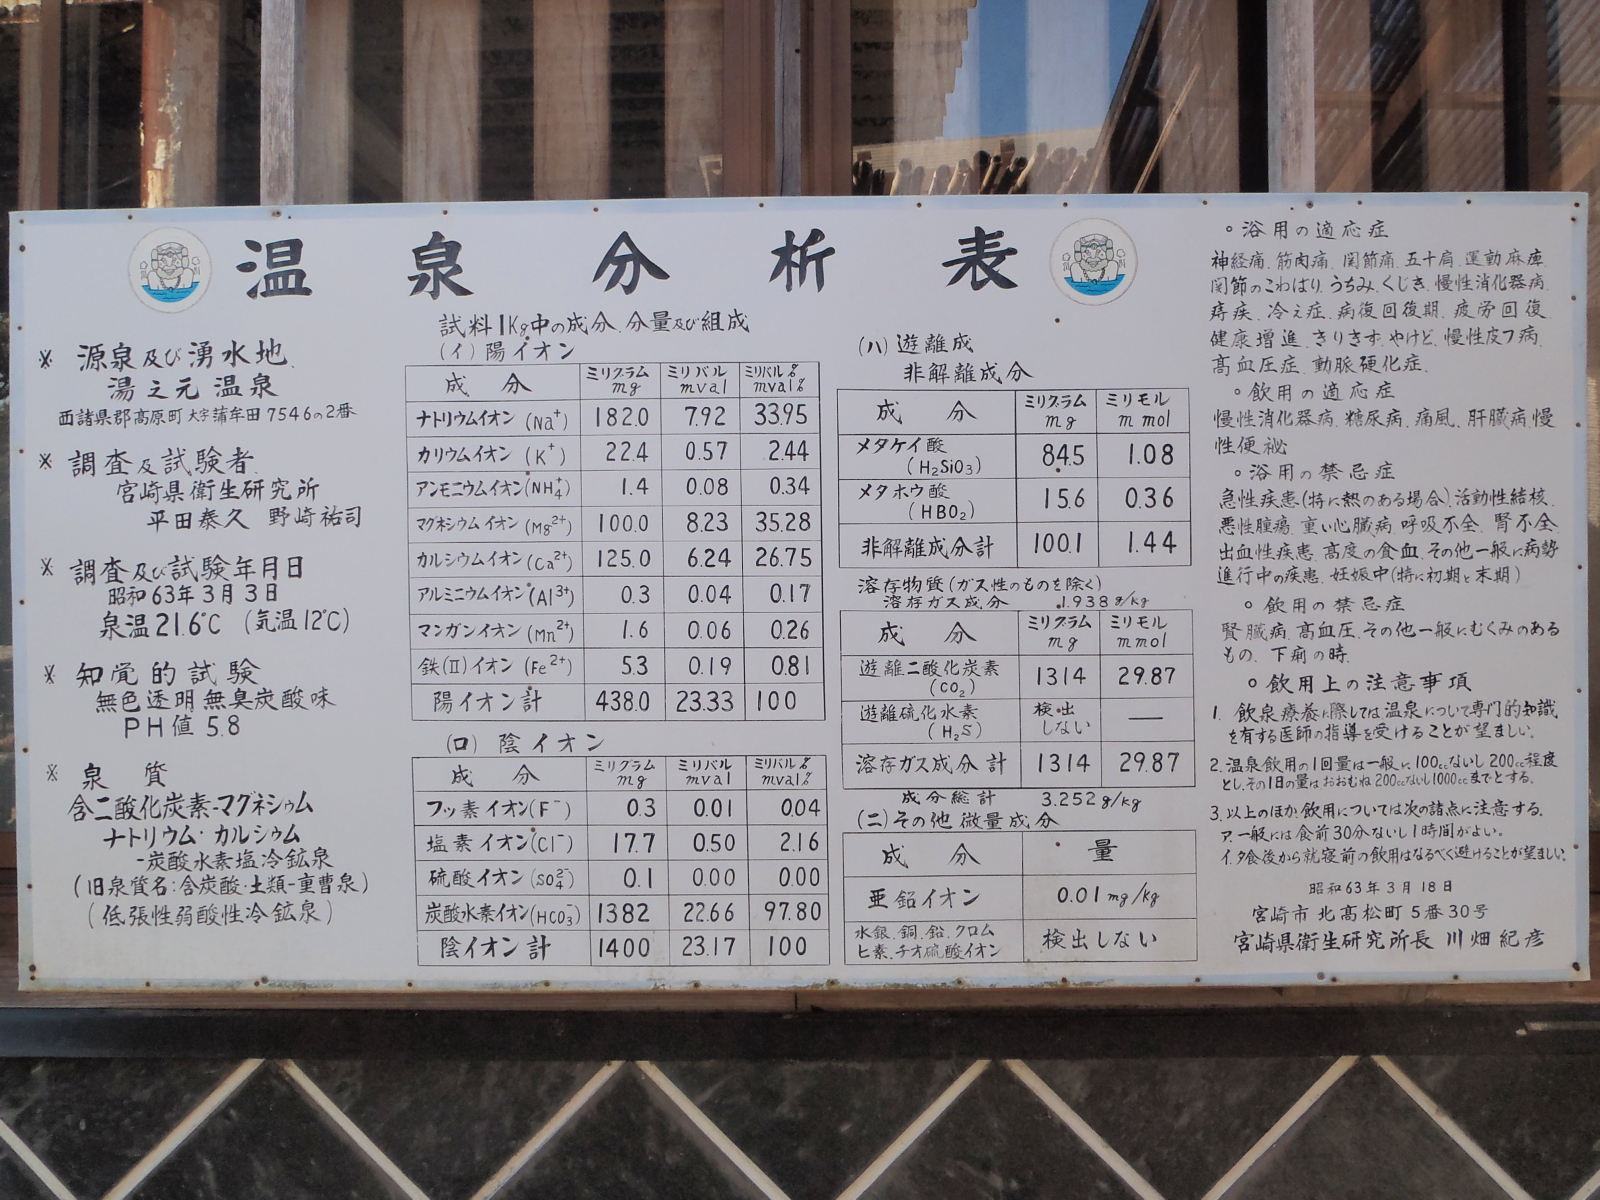 温泉分析表
※ 源泉及び湧水地
湯之元温泉
西諸県郡高原町大字蒲牟田7546の2番
※ 調査及試験者
宮崎県衛生研究所
平田泰久 野崎祐司
※ 調査及び試験年月日
昭和63年3月3日
泉温21.6℃ (気温12℃)
※ 知覚的試験
無色透明無臭炭酸味
PH値5.8
※ 泉質
含二酸化炭素-マグネシウム
ナトリウム・カルシウム
-炭酸水素塩冷鉱泉
(旧泉質名:含炭酸・土類-重曹泉)
(低張性弱酸性冷鉱泉)
試料1Kg中の成分、分量及び組成
(イ) 陽イオン
成分 ミリグラム mg ミリバル mval ミリバル% mval%
ナトリウムイオン(Na⁺) 182.0 7.92 33.95
カリウムイオン(K⁺) 22.4 0.57 2.44
アンモニウムイオン(NH₄⁺) 1.4 0.08 0.34
マグネシウムイオン(Mg²⁺) 100.0 8.23 35.28
カルシウムイオン(Ca²⁺) 125.0 6.24 26.75
アルミニウムイオン(Al³⁺) 0.3 0.04 0.17
マンガンイオン(Mn²⁺) 1.6 0.06 0.26
鉄(II)イオン(Fe²⁺) 5.3 0.19 0.81
陽イオン計 438.0 23.33 100
(ロ) 陰イオン
成分 ミリグラム mg ミリバル mval ミリバル% mval%
フッ素イオン(F⁻) 0.3 0.01 0.04
塩素イオン(Cl⁻) 17.7 0.50 2.16
硫酸イオン(SO₄²⁻) 0.1 0.00 0.00
炭酸水素イオン(HCO₃⁻) 1382 22.66 97.80
陰イオン計 1400 23.17 100
(ハ) 遊離成
非解離成分
成分 ミリグラム mg ミリモル m mol
メタケイ酸 (H₂SiO₃) 84.5 1.08
メタホウ酸 (HBO₂) 15.6 0.36
非解離成分計 100.1 1.44
溶存物質(ガス性のものを除く)
溶存ガス成分 1.938g/kg
成分 ミリグラム mg ミリモル m mol
遊離二酸化炭素 (CO₂) 1314 29.87
遊離硫化水素 (H₂S) 検出しない ―
溶存ガス成分計 1314 29.87
成分総計 3.252g/kg
(ニ) その他微量成分
成分 量
亜鉛イオン 0.01mg/kg
水銀、銅、鉛、クロム
ヒ素、チオ硫酸イオン 検出しない
○浴用の適応症
神経痛、筋肉痛、関節痛、五十肩、運動麻痺、
関節のこわばり、うちみ、くじき、慢性消化器病、
痔疾、冷え症、病後回復期、疲労回復、
健康増進、きりきず、やけど、慢性皮フ病、
高血圧症、動脈硬化症、
○飲用の適応症
慢性消化器病、糖尿病、痛風、肝臓病、慢
性便祕
○浴用の禁忌症
急性疾患(特に熱のある場合)、活動性結核、
悪性腫瘍、重い心臓病、呼吸不全、腎不全、
出血性疾患、高度の貧血、その他一般に病勢
進行中の疾患、妊娠中(特に初期と末期)
○飲用の禁忌症
腎臓病、高血圧、その他一般にむくみのある
もの、下痢の時、
○飲用上の注意事項
1. 飲泉療養に際しては温泉について専門的知識
を有する医師の指導を受けることが望ましい。
2. 温泉飲用の1回量は一般に100ccないし200cc程度
とし、その1日の量はおおむね200ccないし1000ccまでとする。
3. 以上のほか、飲用については次の諸点に注意する。
ア. 一般には食前30分ないし1時間がよい。
イ. 夕食後から就寝前の飲用はなるべく避けることが望ましい。
昭和63年3月18日
宮崎市北高松町5番30号
宮崎県衛生研究所長 川畑紀彦